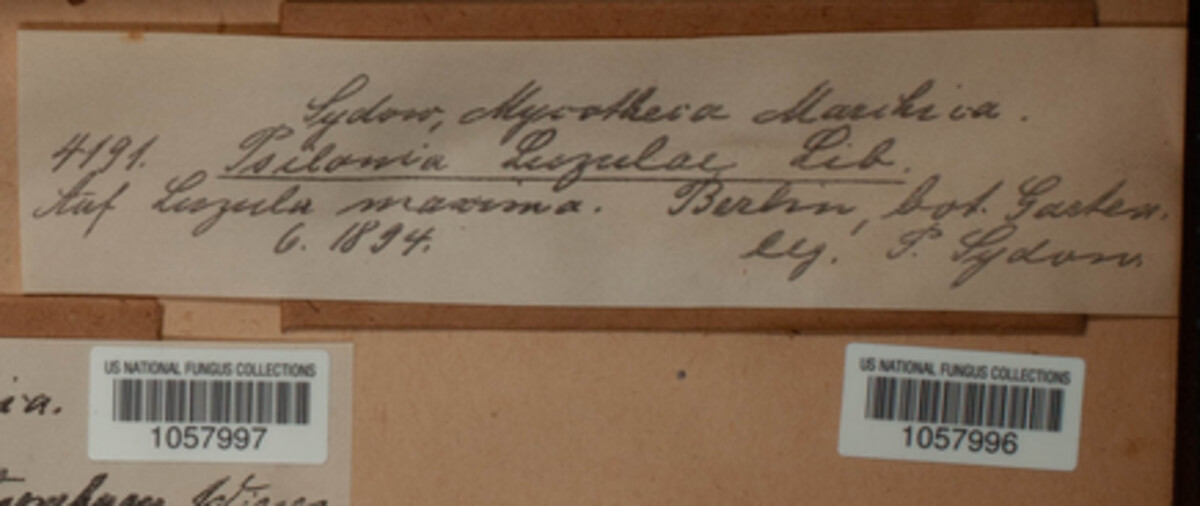 Sydow, Mycotheca Marchica.
4191. Psilonia Luzulae Lib.
Auf Luzula maxima. Berlin, bot. Garten.
6. 1894. leg. P. Sydow.
US NATIONAL FUNGUS COLLECTIONS
1057997
US NATIONAL FUNGUS COLLECTIONS
1057996